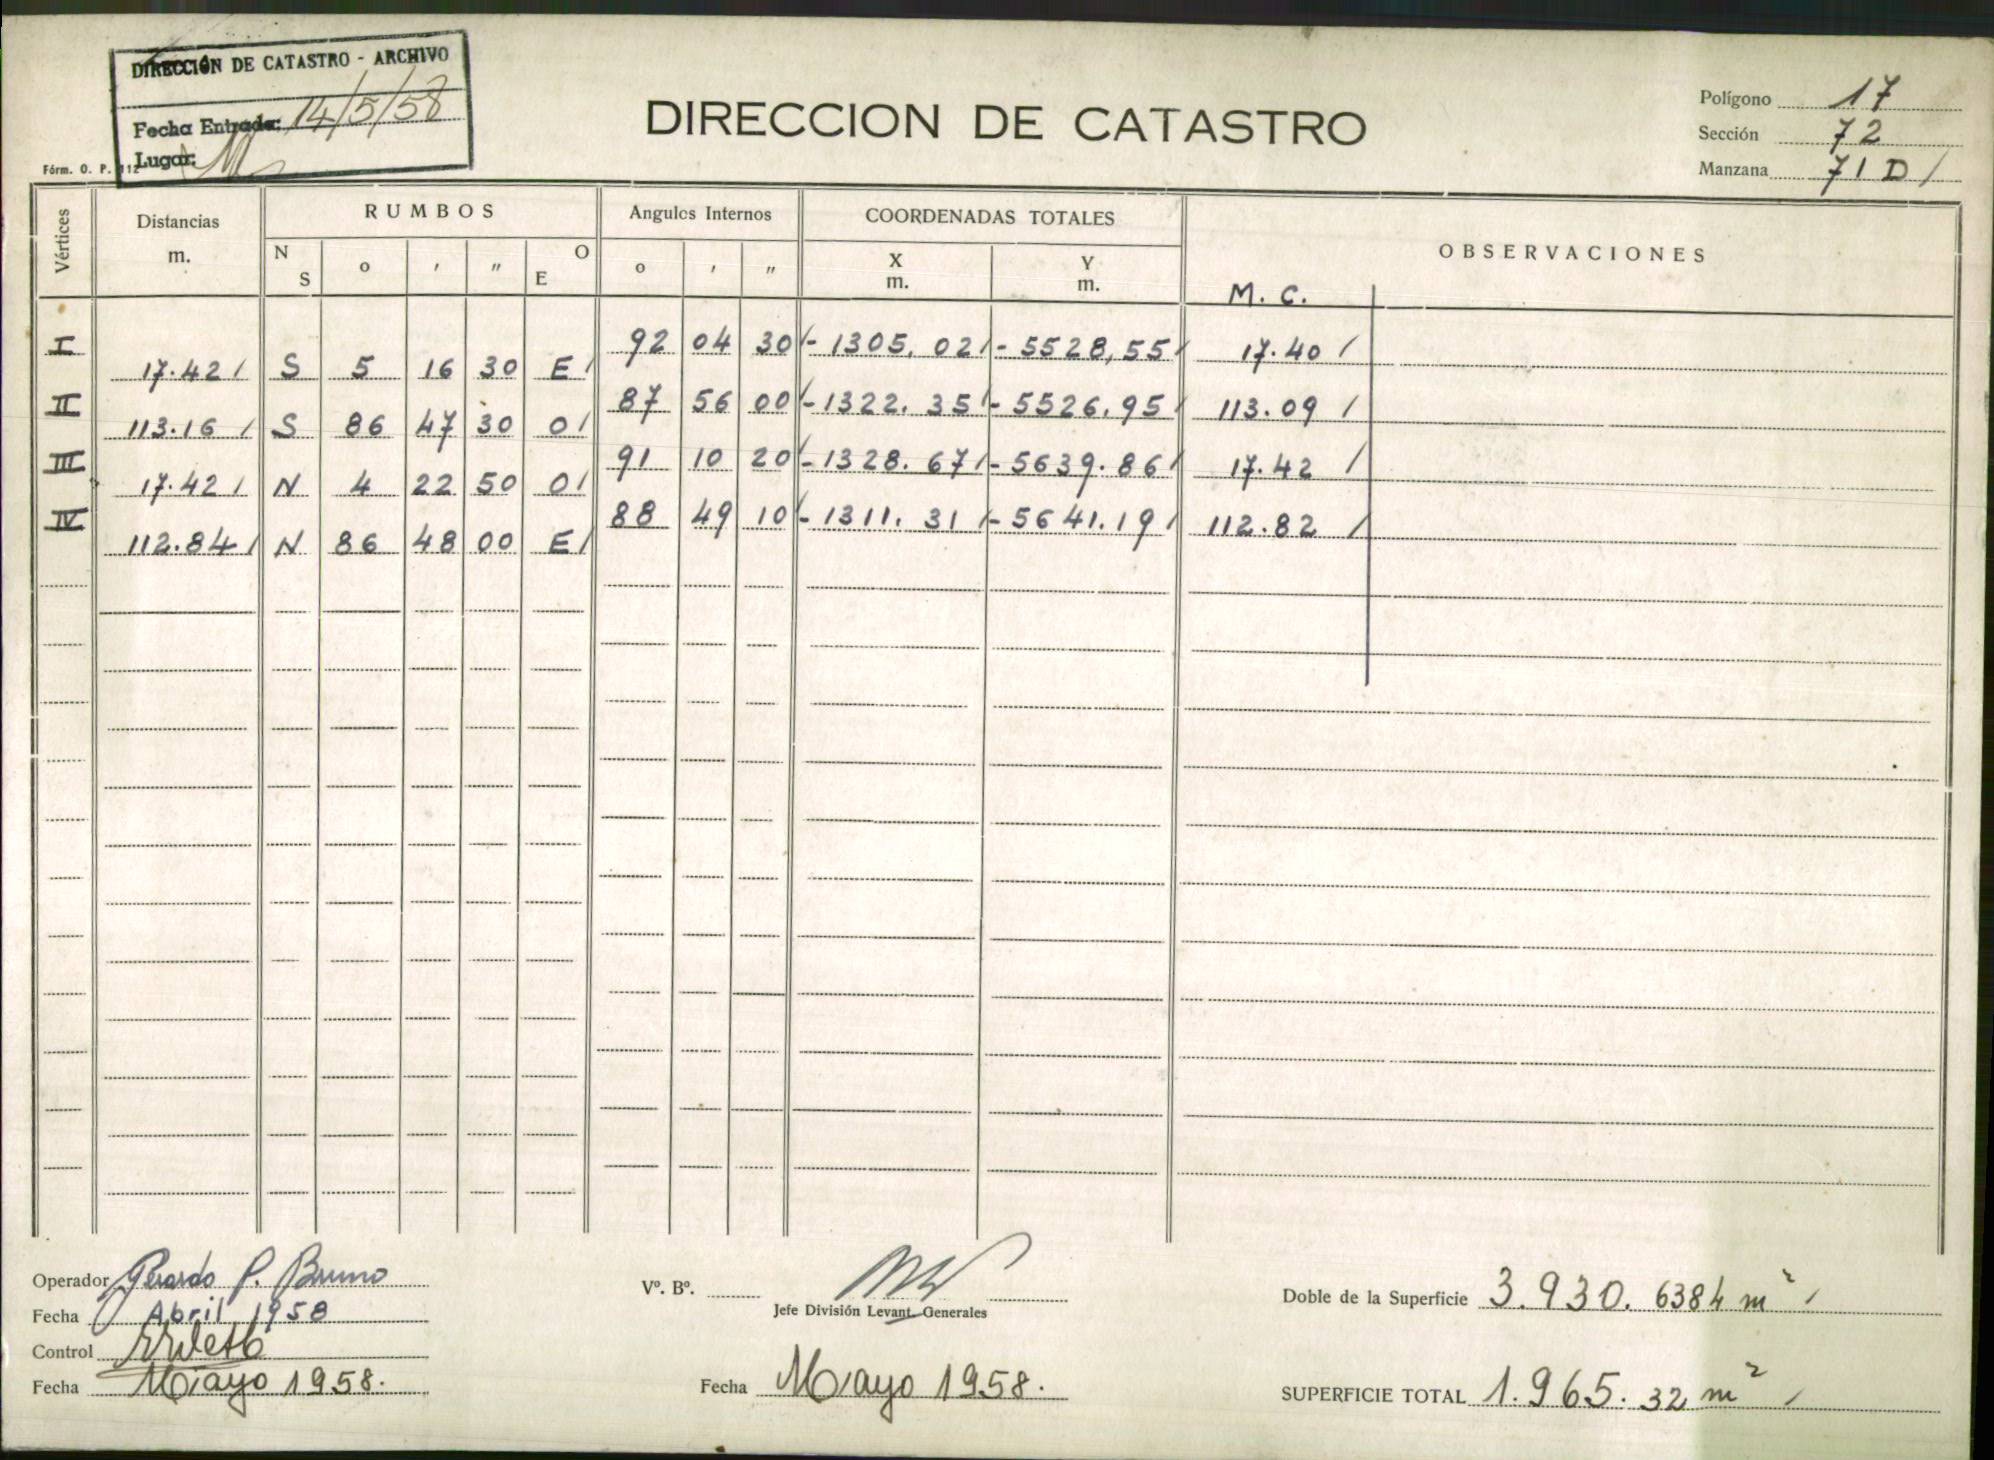 DIRECCIÓN DE CATASTRO - ARCHIVO
Fecha Entrada: 14/5/58
Lugar:
Fórm. O. P. 112
DIRECCION DE CATASTRO
Polígono 17
Sección 72
Manzana 71 D /
Vértices Distancias m. RUMBOS N S o ' " O E Angulos Internos o ' " COORDENADAS TOTALES X m. Y m. OBSERVACIONES
M. C.
I 92 04 30 /- 1305,02 /- 5528,55 / 17.40 /
17.42 / S 5 16 30 E /
II 87 56 00 /- 1322.35 /- 5526.95 / 113.09 /
113.16 / S 86 47 30 O /
III 91 10 20 /- 1328.67 /- 5639.86 / 17.42 /
17.42 / N 4 22 50 O /
IV 88 49 10 /- 1311.31 /- 5641.19 / 112.82 /
112.84 / N 86 48 00 E /
Operador Gerardo P. Bruno
Fecha Abril 1958
Control
Fecha Mayo 1958.
Vº. Bº.
Jefe División Levant. Generales
Fecha Mayo 1958.
Doble de la Superficie 3.930.6384 m² /
SUPERFICIE TOTAL 1.965.32 m² /